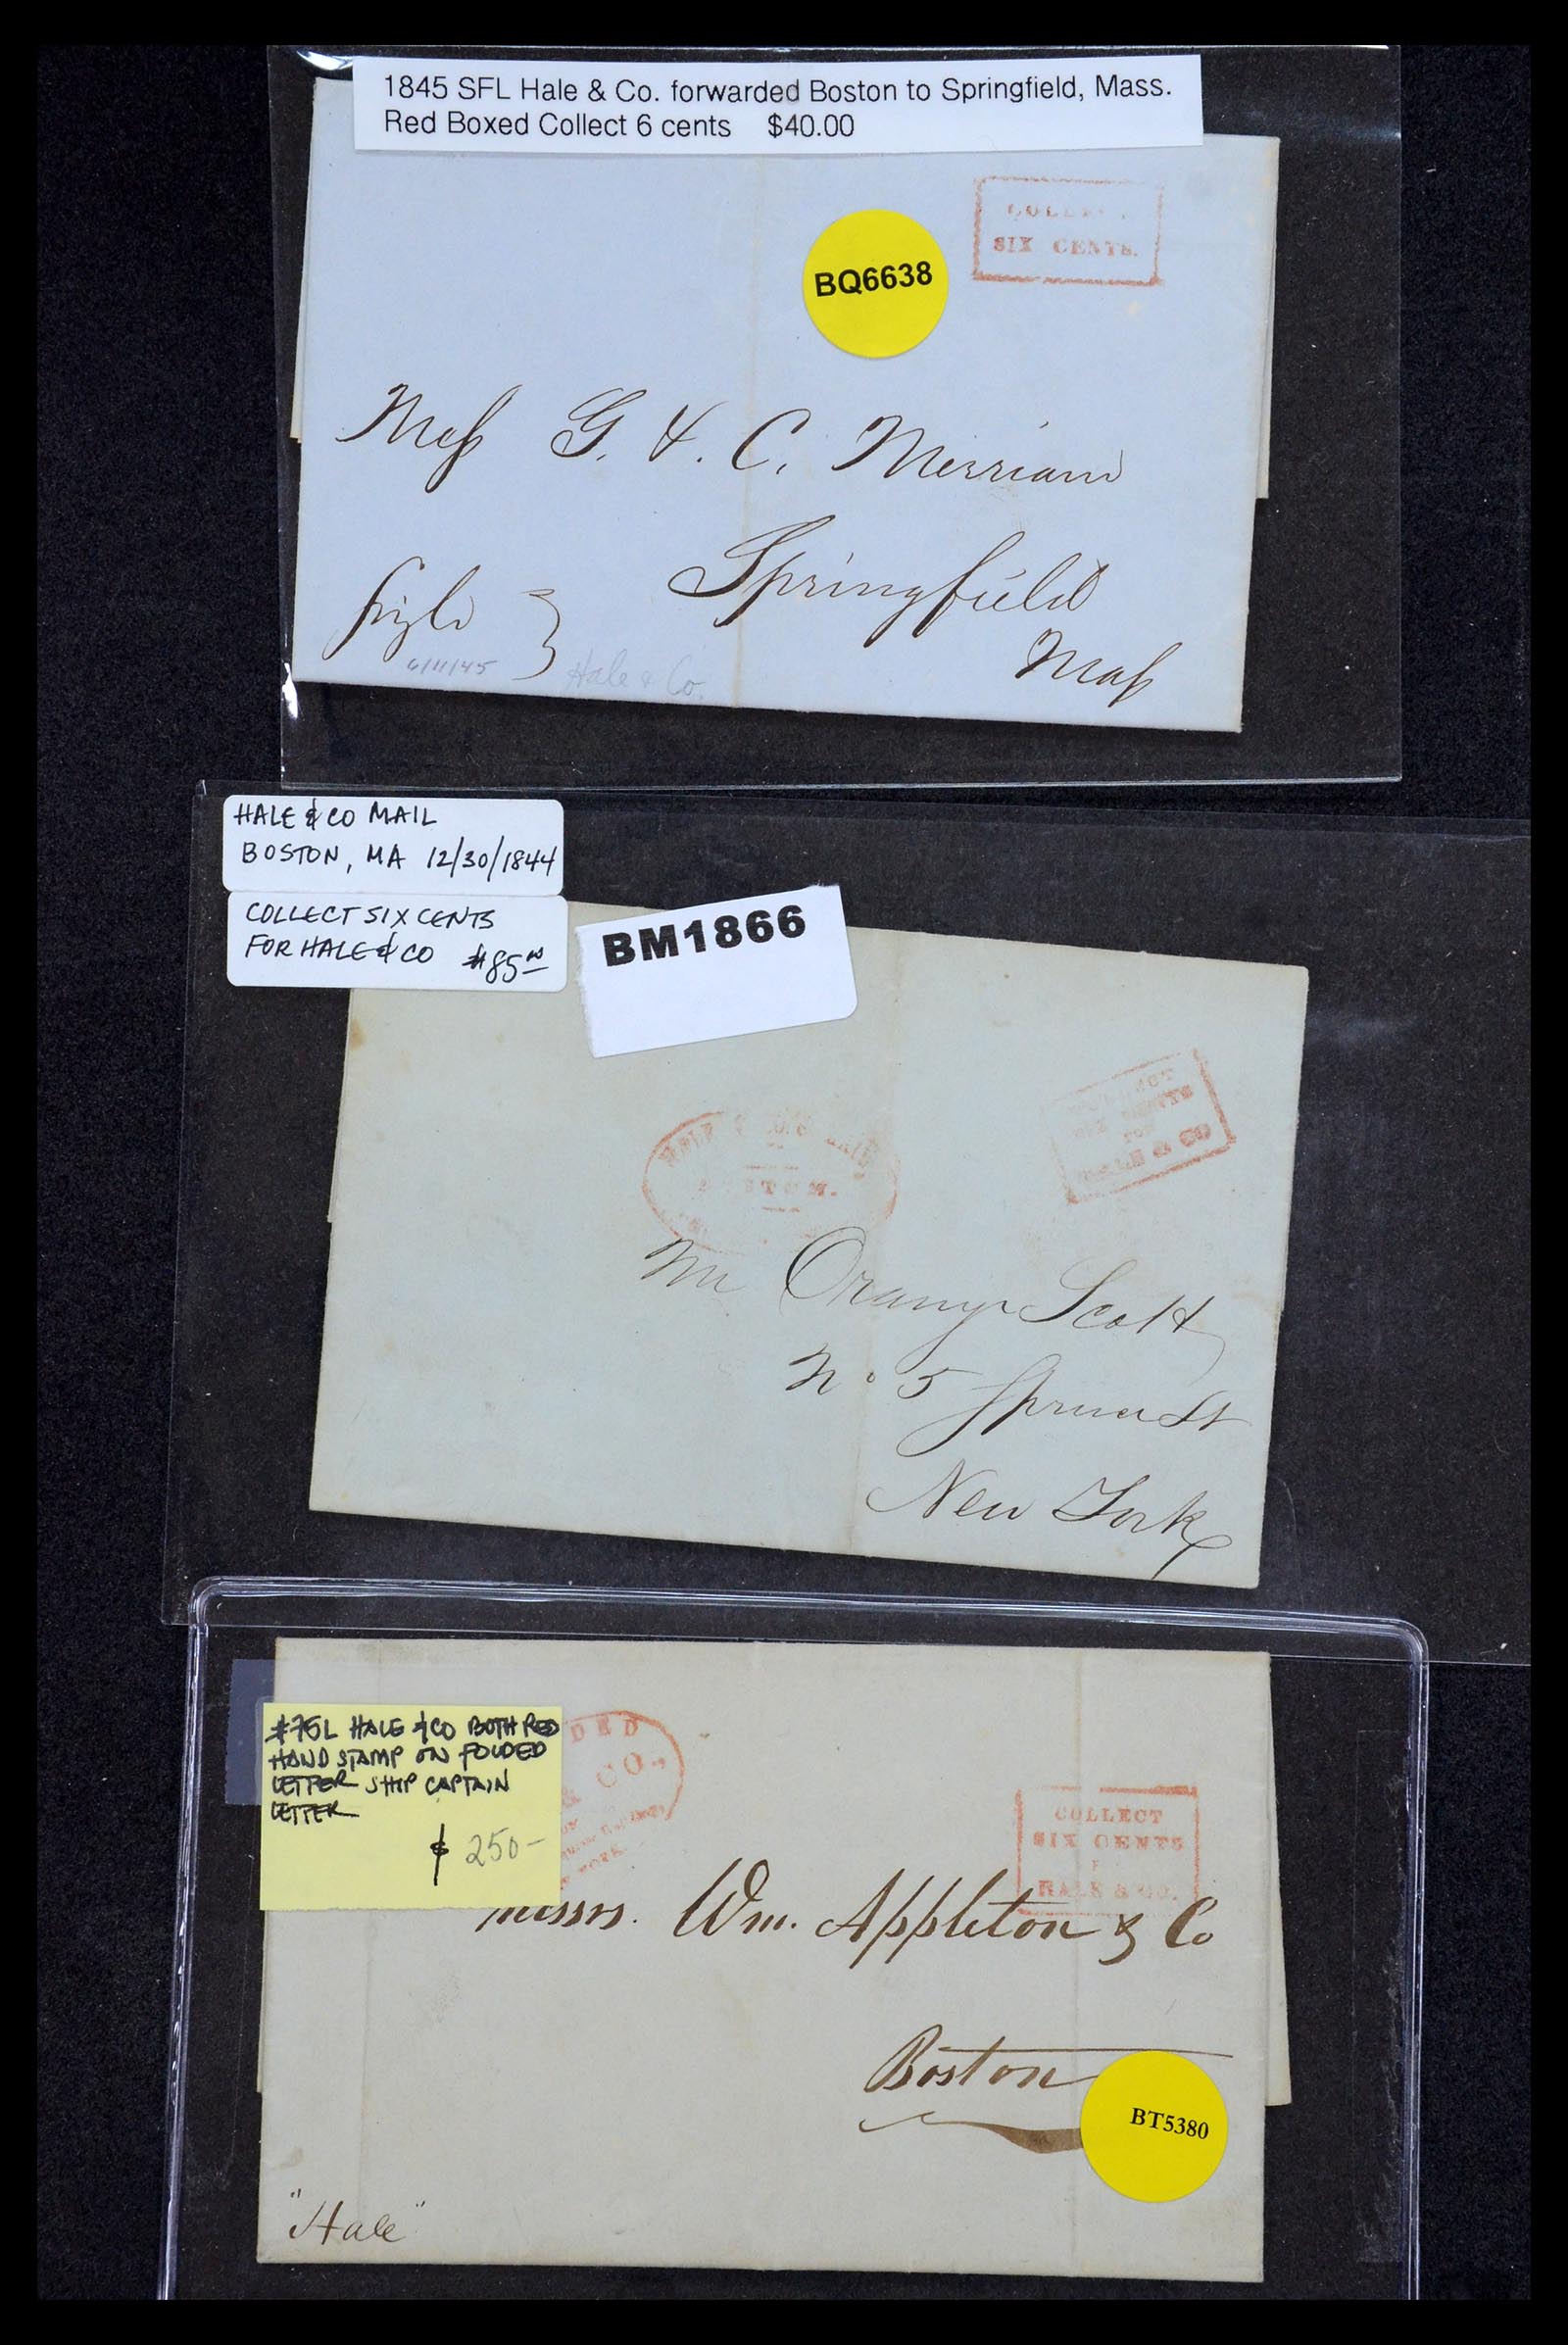 1845 SFL Hale & Co. forwarded Boston to Springfield, Mass.
Red Boxed Collect 6 cents $40.00
COLLE
SIX CENTS.
BQ6638
Mess G. & C. Merriam
Springfield
Mass
6/11/45
Hale & Co.
HALE & CO MAIL
BOSTON, MA 12/30/1844
COLLECT SIX CENTS
FOR HALE & CO $85.00
BM1866
FOR
HALE & CO
BOSTON.
Mr Orange Scott
No 5 Spruce St
New York
#75L HALE & CO BOTH RED
HAND STAMP ON FOLDED
LETTER SHIP CAPTAIN
LETTER
$ 250-
DED
& CO.,
YORK
COLLECT
SIX CENTS
F
HALE & CO.
Messrs. Wm. Appleton & Co
Boston
BT5380
"Hale"